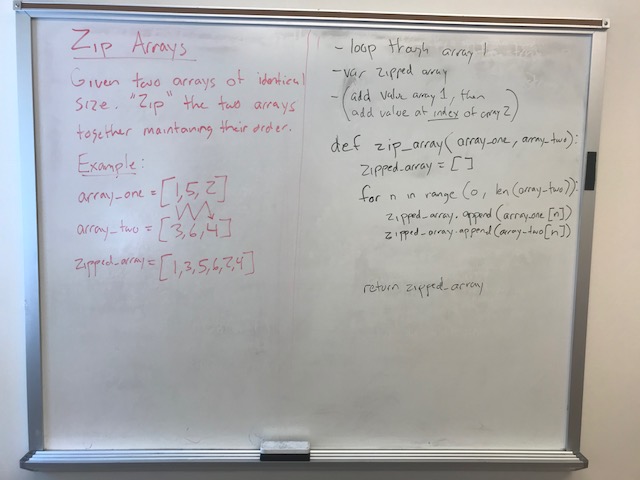 Zip Arrays
Given two arrays of identical
size. "Zip" the two arrays
together maintaining their order.
Example:
array_one = [1,5,2]
array_two = [3,6,4]
zipped_array = [1,3,5,6,2,4]
- loop through array 1
- var zipped array
- (add value array 1, then
add value at index of array 2)
def zip_array(array_one, array_two):
zipped_array = []
for n in range (0, len(array_two)):
zipped_array.append(array_one[n])
zipped_array.append(array_two[n])
return zipped_array